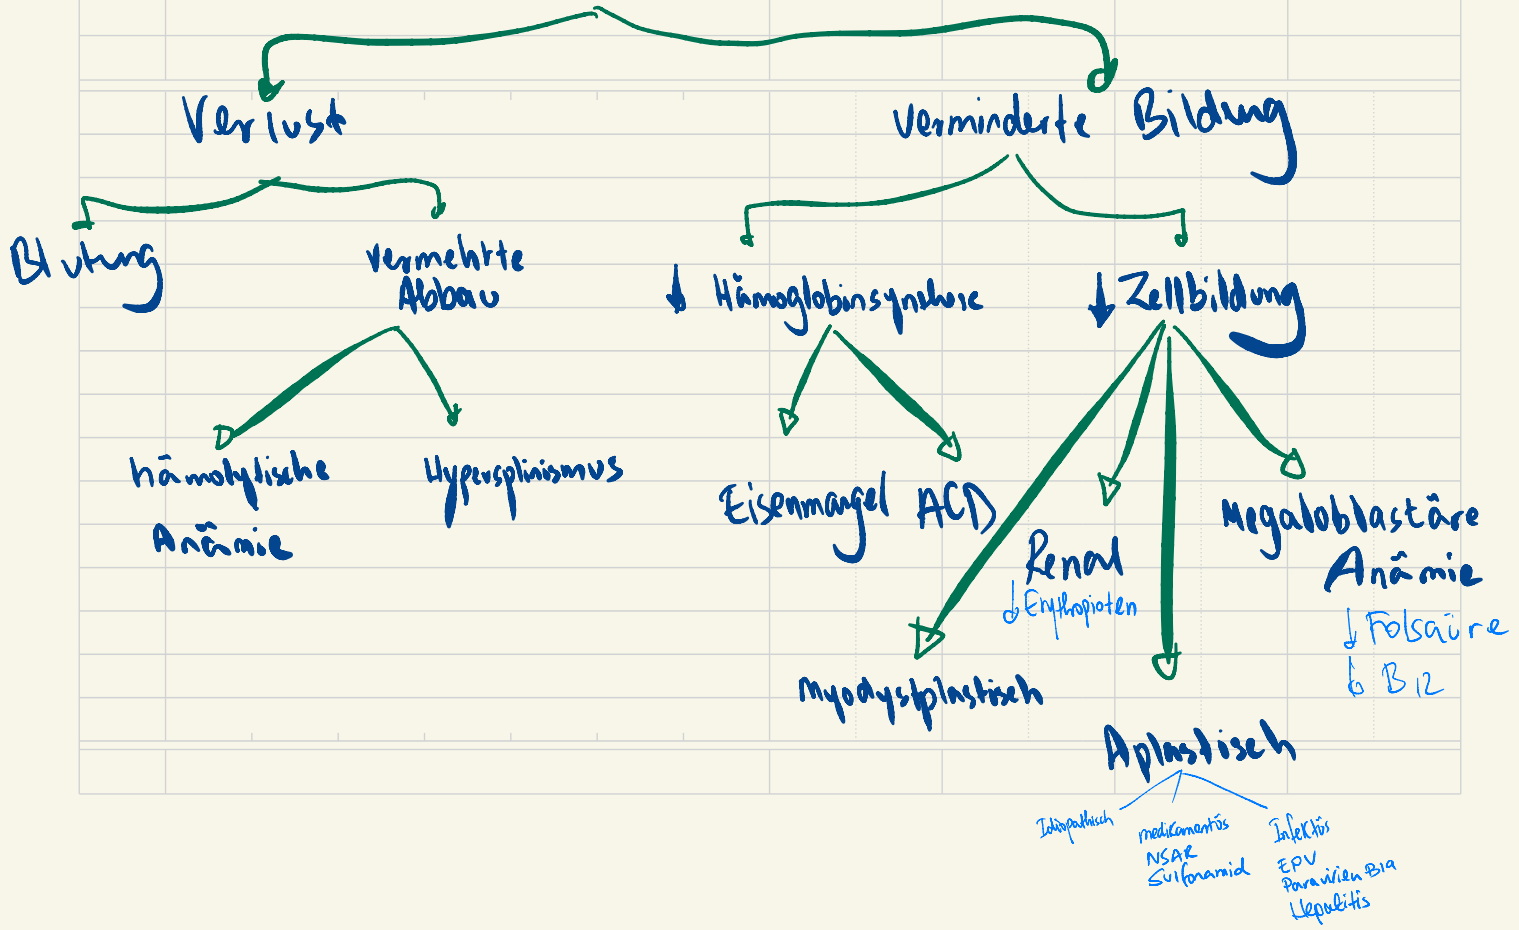 Verlust
Verminderte Bildung
Blutung
Vermehrte
Abbau
↓ Hämoglobinsynthese
↓ Zellbildung
hämolytische
Anämie
Hypersplinismus
Eisenmangel
ACD
Renal
↓ Erythropioten
Megaloblastäre
Anämie
↓ Folsäure
↓ B12
Myodystplastisch
Aplastisch
Idiopathisch
medikamentös
NSAR
Sulfonamid
Infektiös
EPV
Paravirien B19
Hepatitis